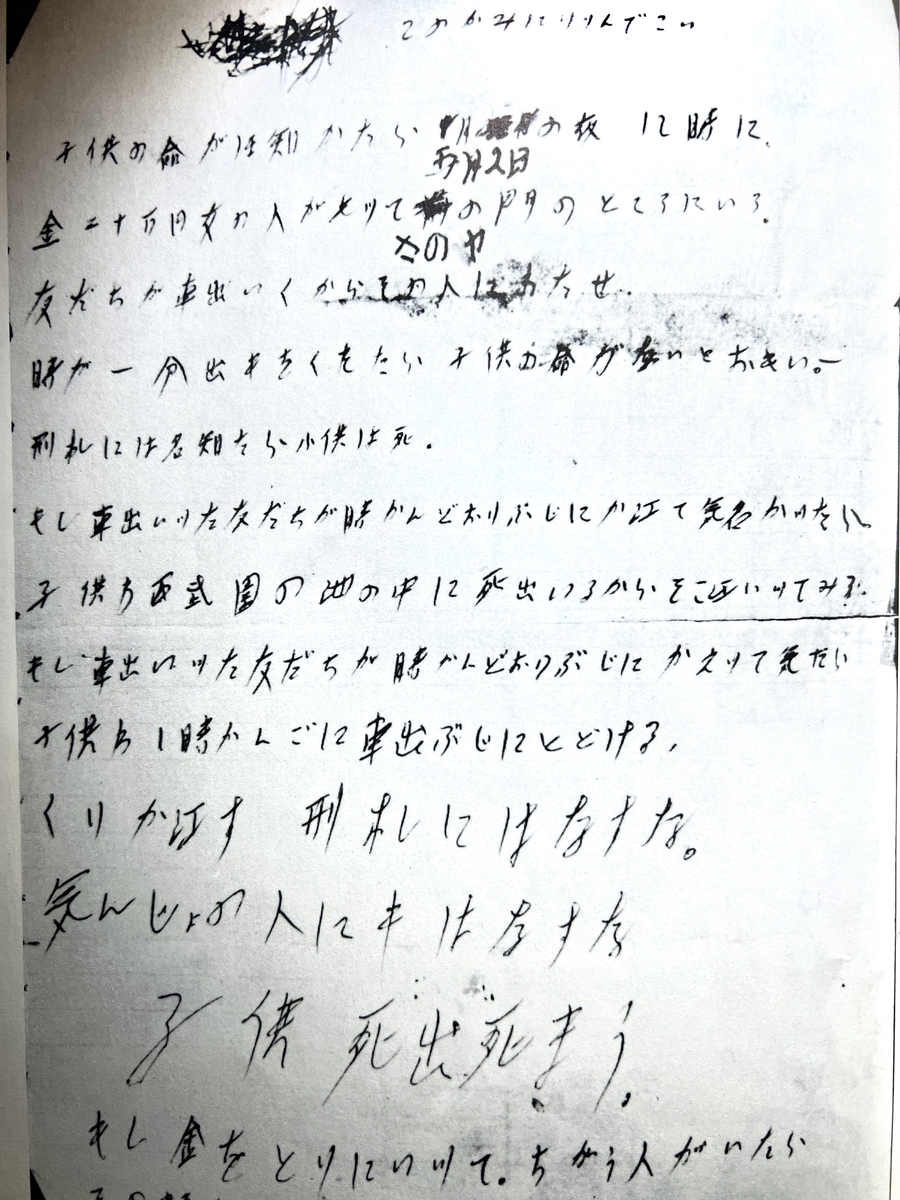 このかみにツツんでこい
子供の命がほ知かたら 五月2日の夜 12時に、
金二十万円女の人がもツてさのヤの門のところにいろ。
友だちが車出いくからその人にわたせ。
時が一分出もをくをたら子供の命がないとおもい。ー
刑札には名知たら小供は死。
もし車出いツた友だちが時かんどおりぶじにか江て気名かツたら
子供わ西武園の池の中に死出いるからそこ江いツてみろ。
もし車出いツた友だちが時かんどおりぶじにかえツて気たら
子供わ1時かんごに車出ぶじにとどける、
くりか江す 刑札にはなすな。
気んじょの人にもはなすな
子供死出死まう。
もし金をとりにいツて。ちがう人がいたら